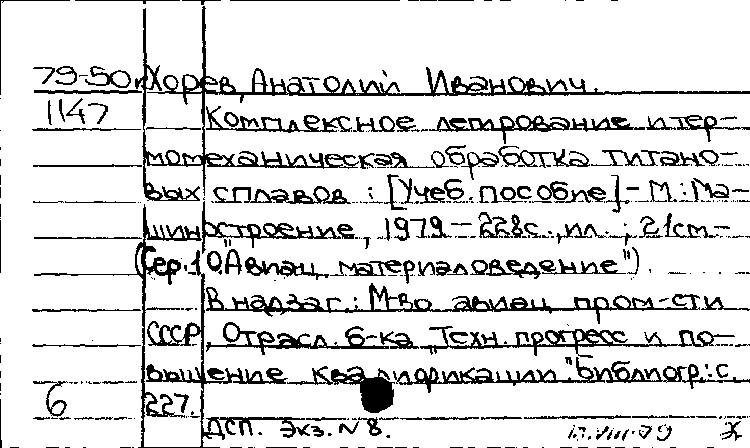 79-50к Хорев, Анатолий Иванович.
1147 Комплексное легирование и тер-
момеханическая обработка титано-
вых сплавов : [Учеб. пособие] - М.: Ма-
шиностроение, 1979 - 228с., ил. ; 21см -
(Сер. 10 "Авиац. материаловедение").
В надзаг.: М-во авиац. пром-сти
СССР, Отрасл. б-ка "Техн. прогресс и по-
вышение квалификации". Библиогр.: с.
6 227.
ДСП. Экз. N 8. 17.VIII.79 Х